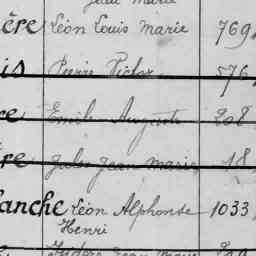 Jean Marie
ère Léon Louis Marie 769
is Pierre Victor 576
re Emile Auguste 208
re Jules Jean Marie 18
lanche Léon Alphonse 1033
Henri
Isidore Jean